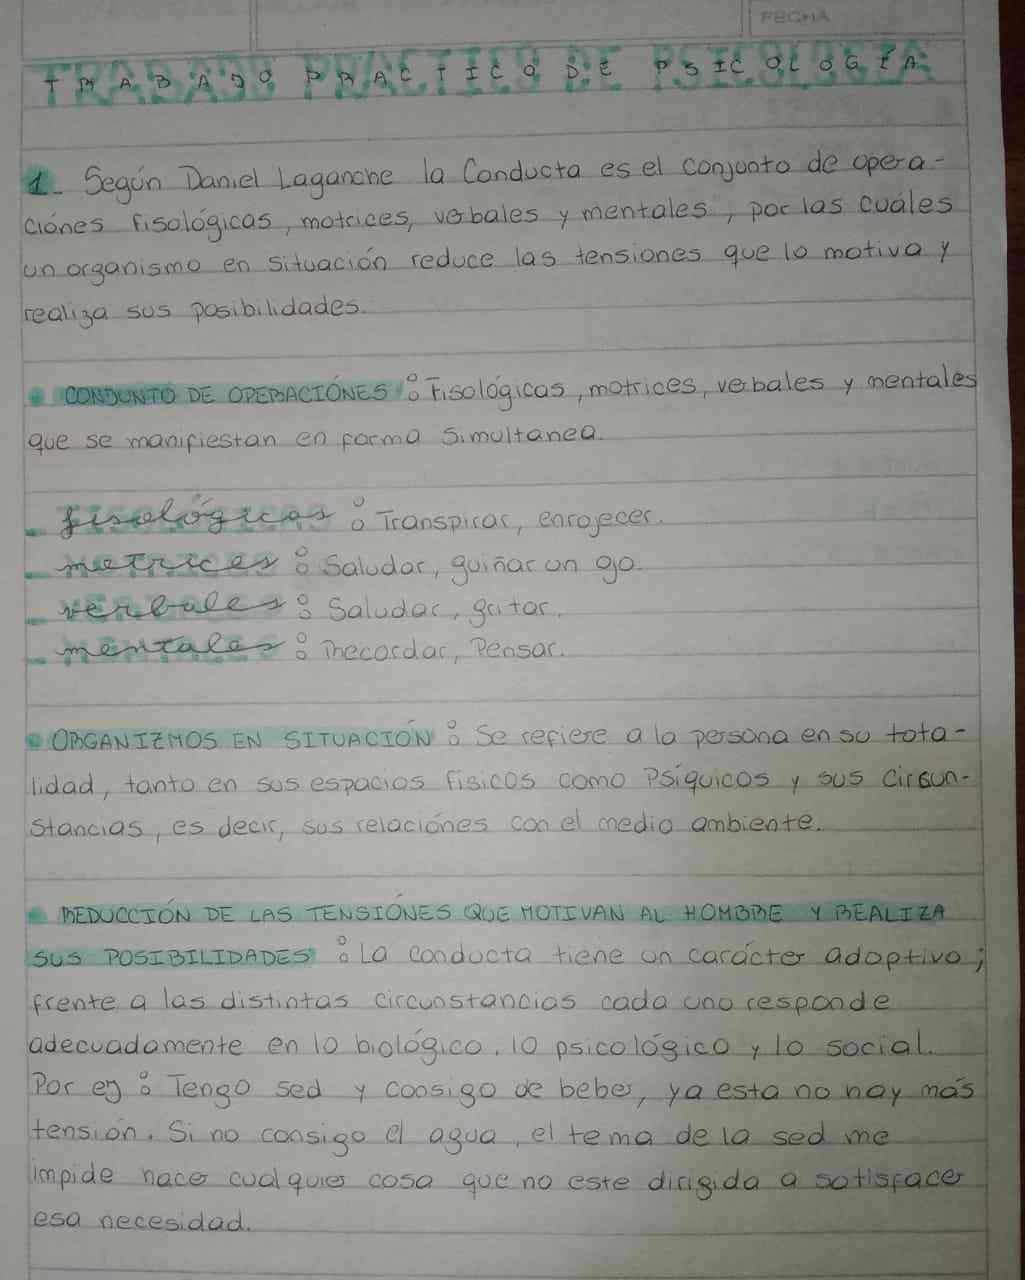 FECHA
TRABAJO PRACTICO DE PSICOLOGIA
1. Según Daniel Laganche la Conducta es el conjunto de opera-
ciónes fisológicas, motrices, verbales y mentales, por las cuáles
un organismo en situación reduce las tensiones que lo motiva y
realiza sus posibilidades.
• CONJUNTO DE OPERACIÓNES: Fisológicas, motrices, verbales y mentales
que se manifiestan en forma simultanea.
- fisológicas: Transpirar, enrojecer.
- motrices: Saludar, guiñar un ojo.
- verbales: Saludar, gritar.
- mentales: Recordar, Pensar.
• ORGANIZMOS EN SITUACIÓN: Se refiere a la persona en su tota-
lidad, tanto en sus espacios físicos como Psíquicos y sus circun-
stancias, es decir, sus relaciónes con el medio ambiente.
• REDUCCIÓN DE LAS TENSIÓNES QUE MOTIVAN AL HOMBRE Y REALIZA
SUS POSIBILIDADES: La conducta tiene un carácter adaptivo;
frente a las distintas circunstancias cada uno responde
adecuadamente en lo biológico, lo psicológico y lo social.
Por ej: Tengo sed y consigo de beber, ya esta no hay más
tensión. Si no consigo el agua, el tema de la sed me
impide hacer cualquier cosa que no este dirigida a satisfacer
esa necesidad.